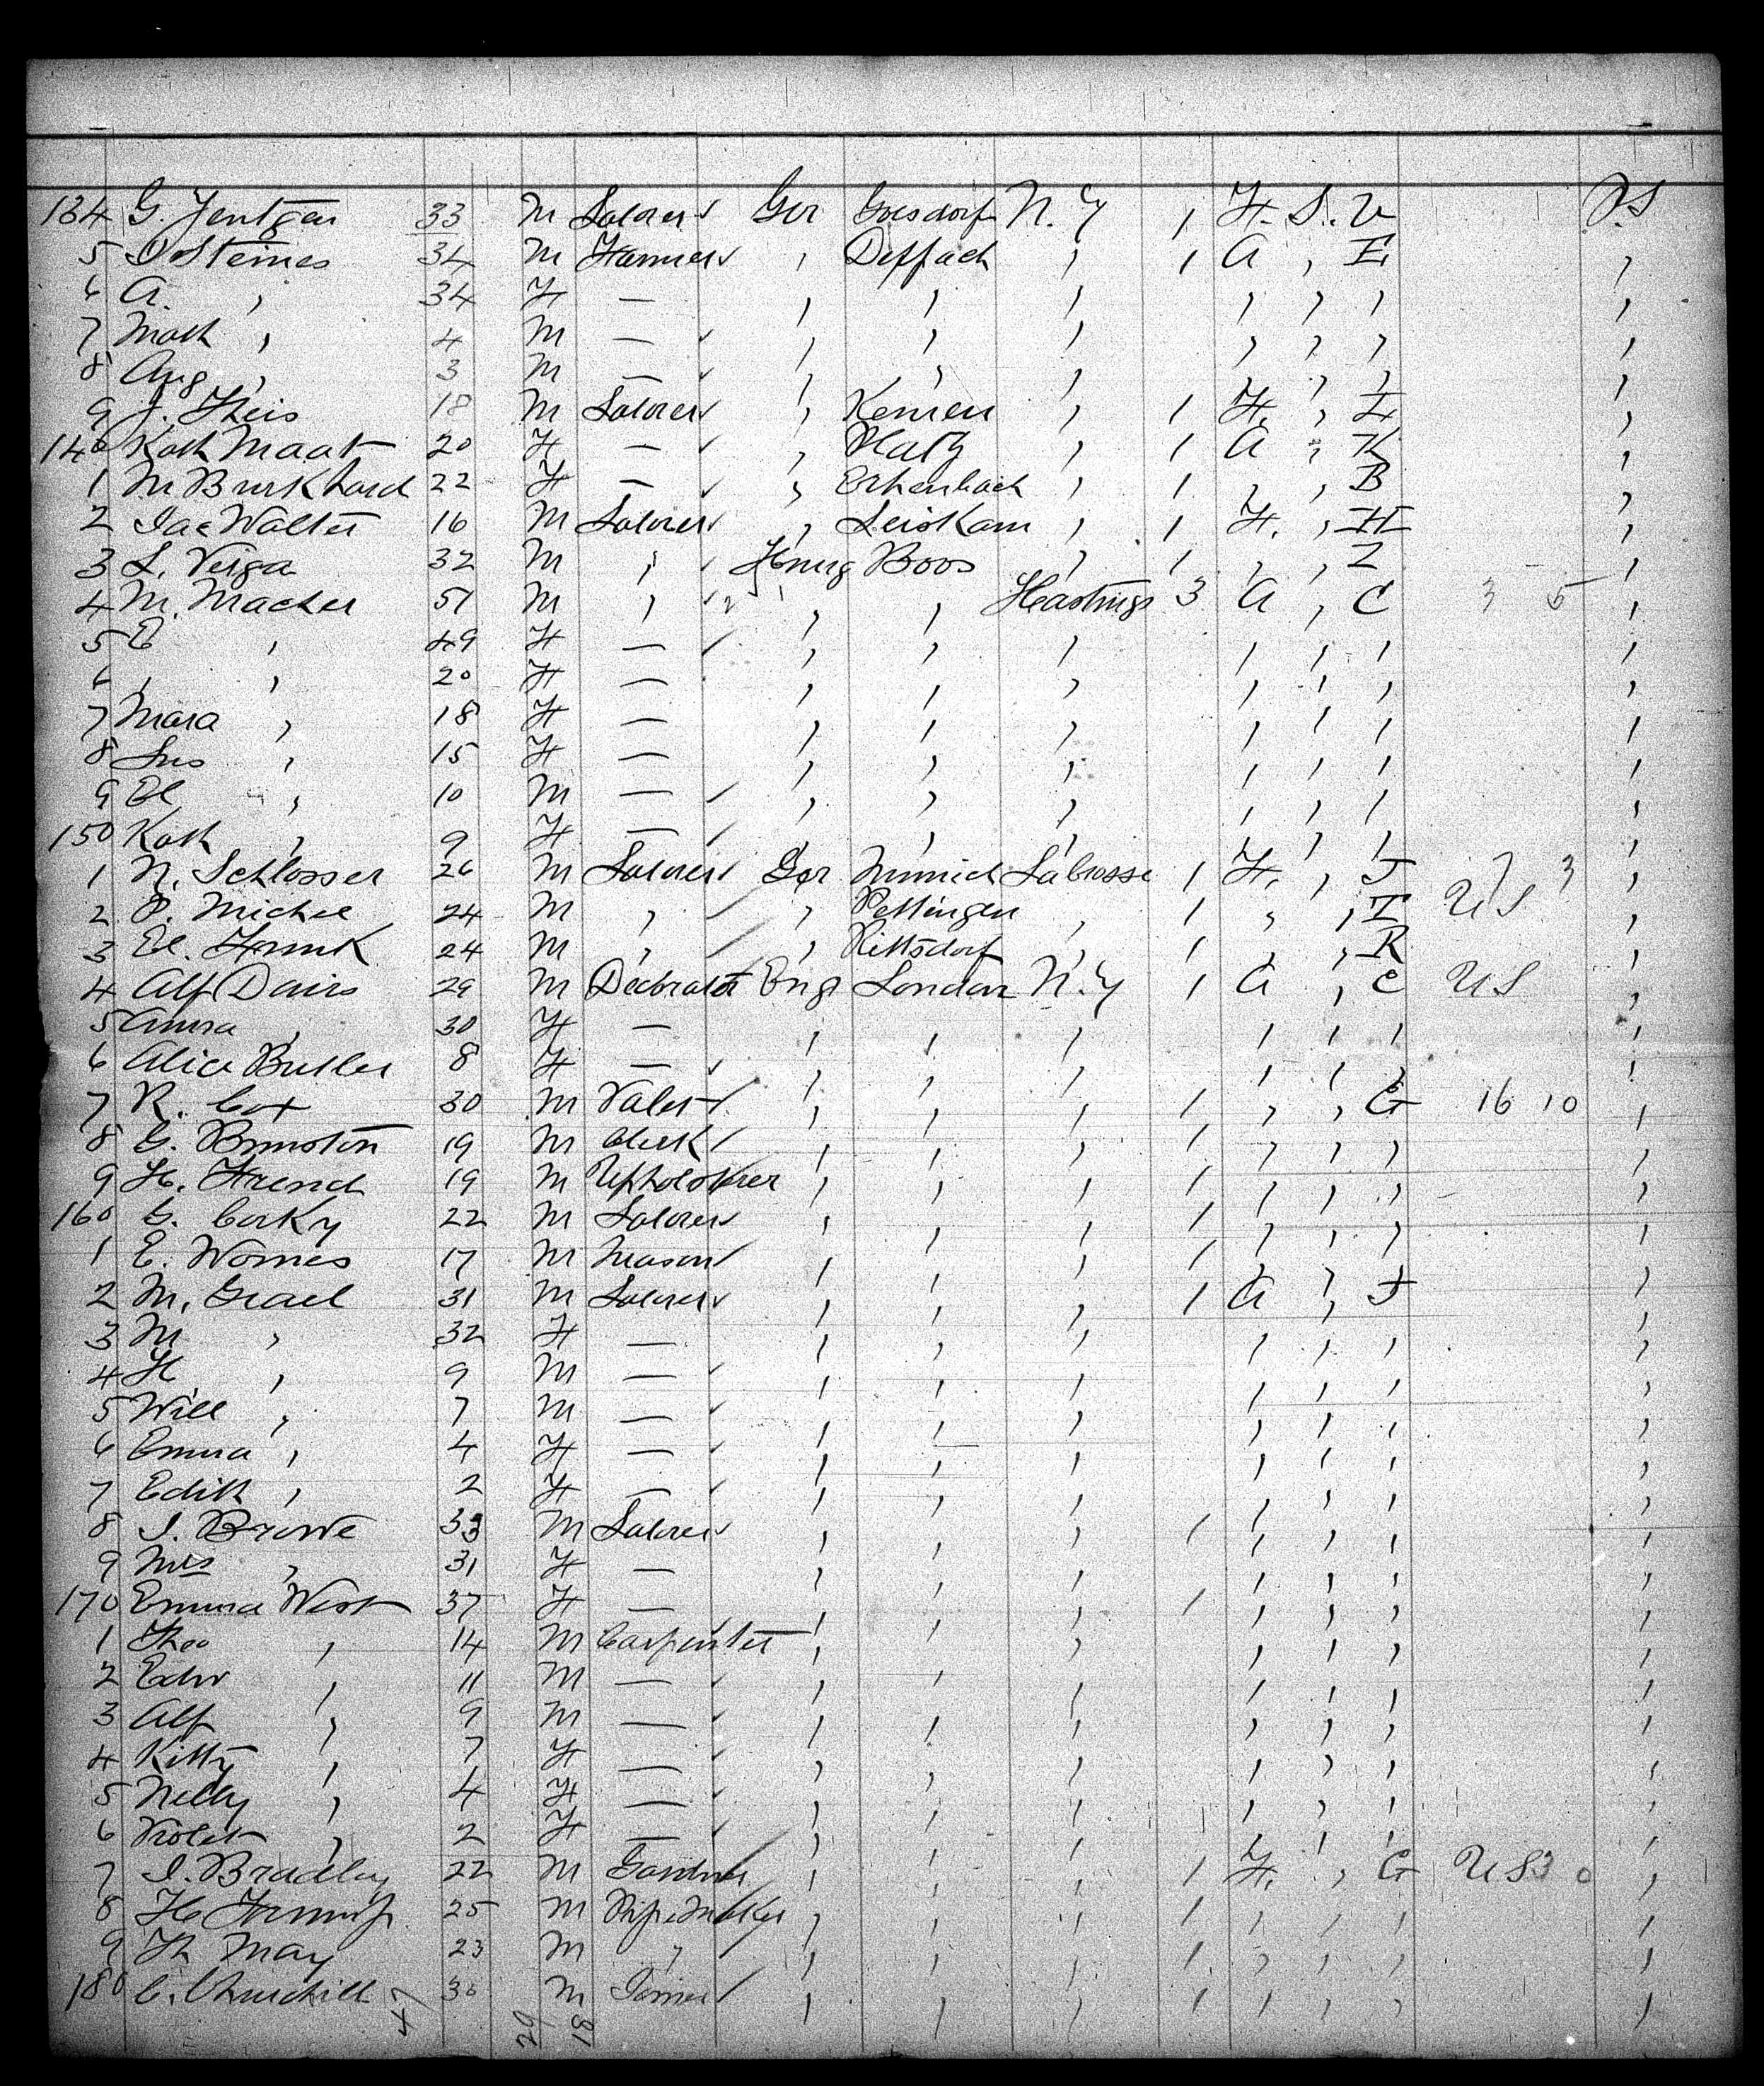 134 G. Jentgen 33 M Laborer Ger Goesdorf N.Y 1 F. S. U P.S
5 J Steines 34 M Farmer , Deffach , 1 A , E ,
6 A. , 34 F — , , , , , , ,
7 Math , 4 M — , , , , , , ,
8 Aug , 3 M — , , , , , , ,
9 J. Theis 18 M Laborer , Kemen , 1 F. , L ,
140 Kath Maat 20 F — , Platz , 1 A , K ,
1 M Burkhard 22 F — , Erhenbach , 1 , , B ,
2 Jac Walter 16 M Laborer , Leiskam , 1 F. , H ,
3 L. Veiga 32 M , Hung Boos , 1 , , Z ,
4 M. Macher 51 M , , , Hastings 3 A , C 3 5 ,
5 E , 49 F — , , , , , , ,
6 , , 20 F — , , , , , , ,
7 Mara , 18 F — , , , , , , ,
8 Sus , 15 F — , , , , , , ,
9 El , 10 M — , , , , , , ,
150 Kath , 9 F — , , , , , , ,
1 N. Schlosser 26 M Laborer Ger Munich La Crosse 1 F. , J 7 3 ,
2 P. Michel 24 M , , Pettingen , 1 , , I US ,
3 El. Frank 24 M , , Rittsdorf , 1 , , R ,
4 Alf Davis 29 M Decorator Engl London N.Y 1 A , C US ,
5 Anna , 30 F — , , , , , , ,
6 Alice Butler 8 F — , , , , , , ,
7 R. Cox 30 M Valet , , , 1 , , G 16 10 ,
8 G. Brinston 19 M Clerk , , , 1 , , , ,
9 H. Friend 19 M Upholsterer , , , 1 , , , ,
160 G. Corky 22 M Laborer , , , 1 , , , ,
1 E. Wornes 17 M Mason , , , 1 , , , ,
2 M. Grael 31 M Laborer , , , 1 A , J ,
3 M , 32 F — , , , , , , ,
4 H , 9 M — , , , , , , ,
5 Will , 7 M — , , , , , , ,
6 Emma , 4 F — , , , , , , ,
7 Edith , 2 F — , , , , , , ,
8 J. Browe 33 M Laborer , , , 1 , , , ,
9 Mrs , 31 F — , , , , , , ,
170 Emma West 37 F — , , , 1 , , , ,
1 Theo , 14 M Carpenter , , , , , , ,
2 Edw , 11 M — , , , , , , ,
3 Alf , 9 M — , , , , , , ,
4 Kitty , 7 F — , , , , , , ,
5 Nelly , 4 F — , , , , , , ,
6 Violet , 2 F — , , , , , , ,
7 J. Bradley 22 M Gardner , , , 1 F. , G US 3 0 ,
8 H 25 M Pipe Maker , , , 1 , , , ,
9 Th May 23 M , , , , 1 , , , ,
180 C. Churchill 30 M Joiner , , , 1 , , , ,
47 29 18